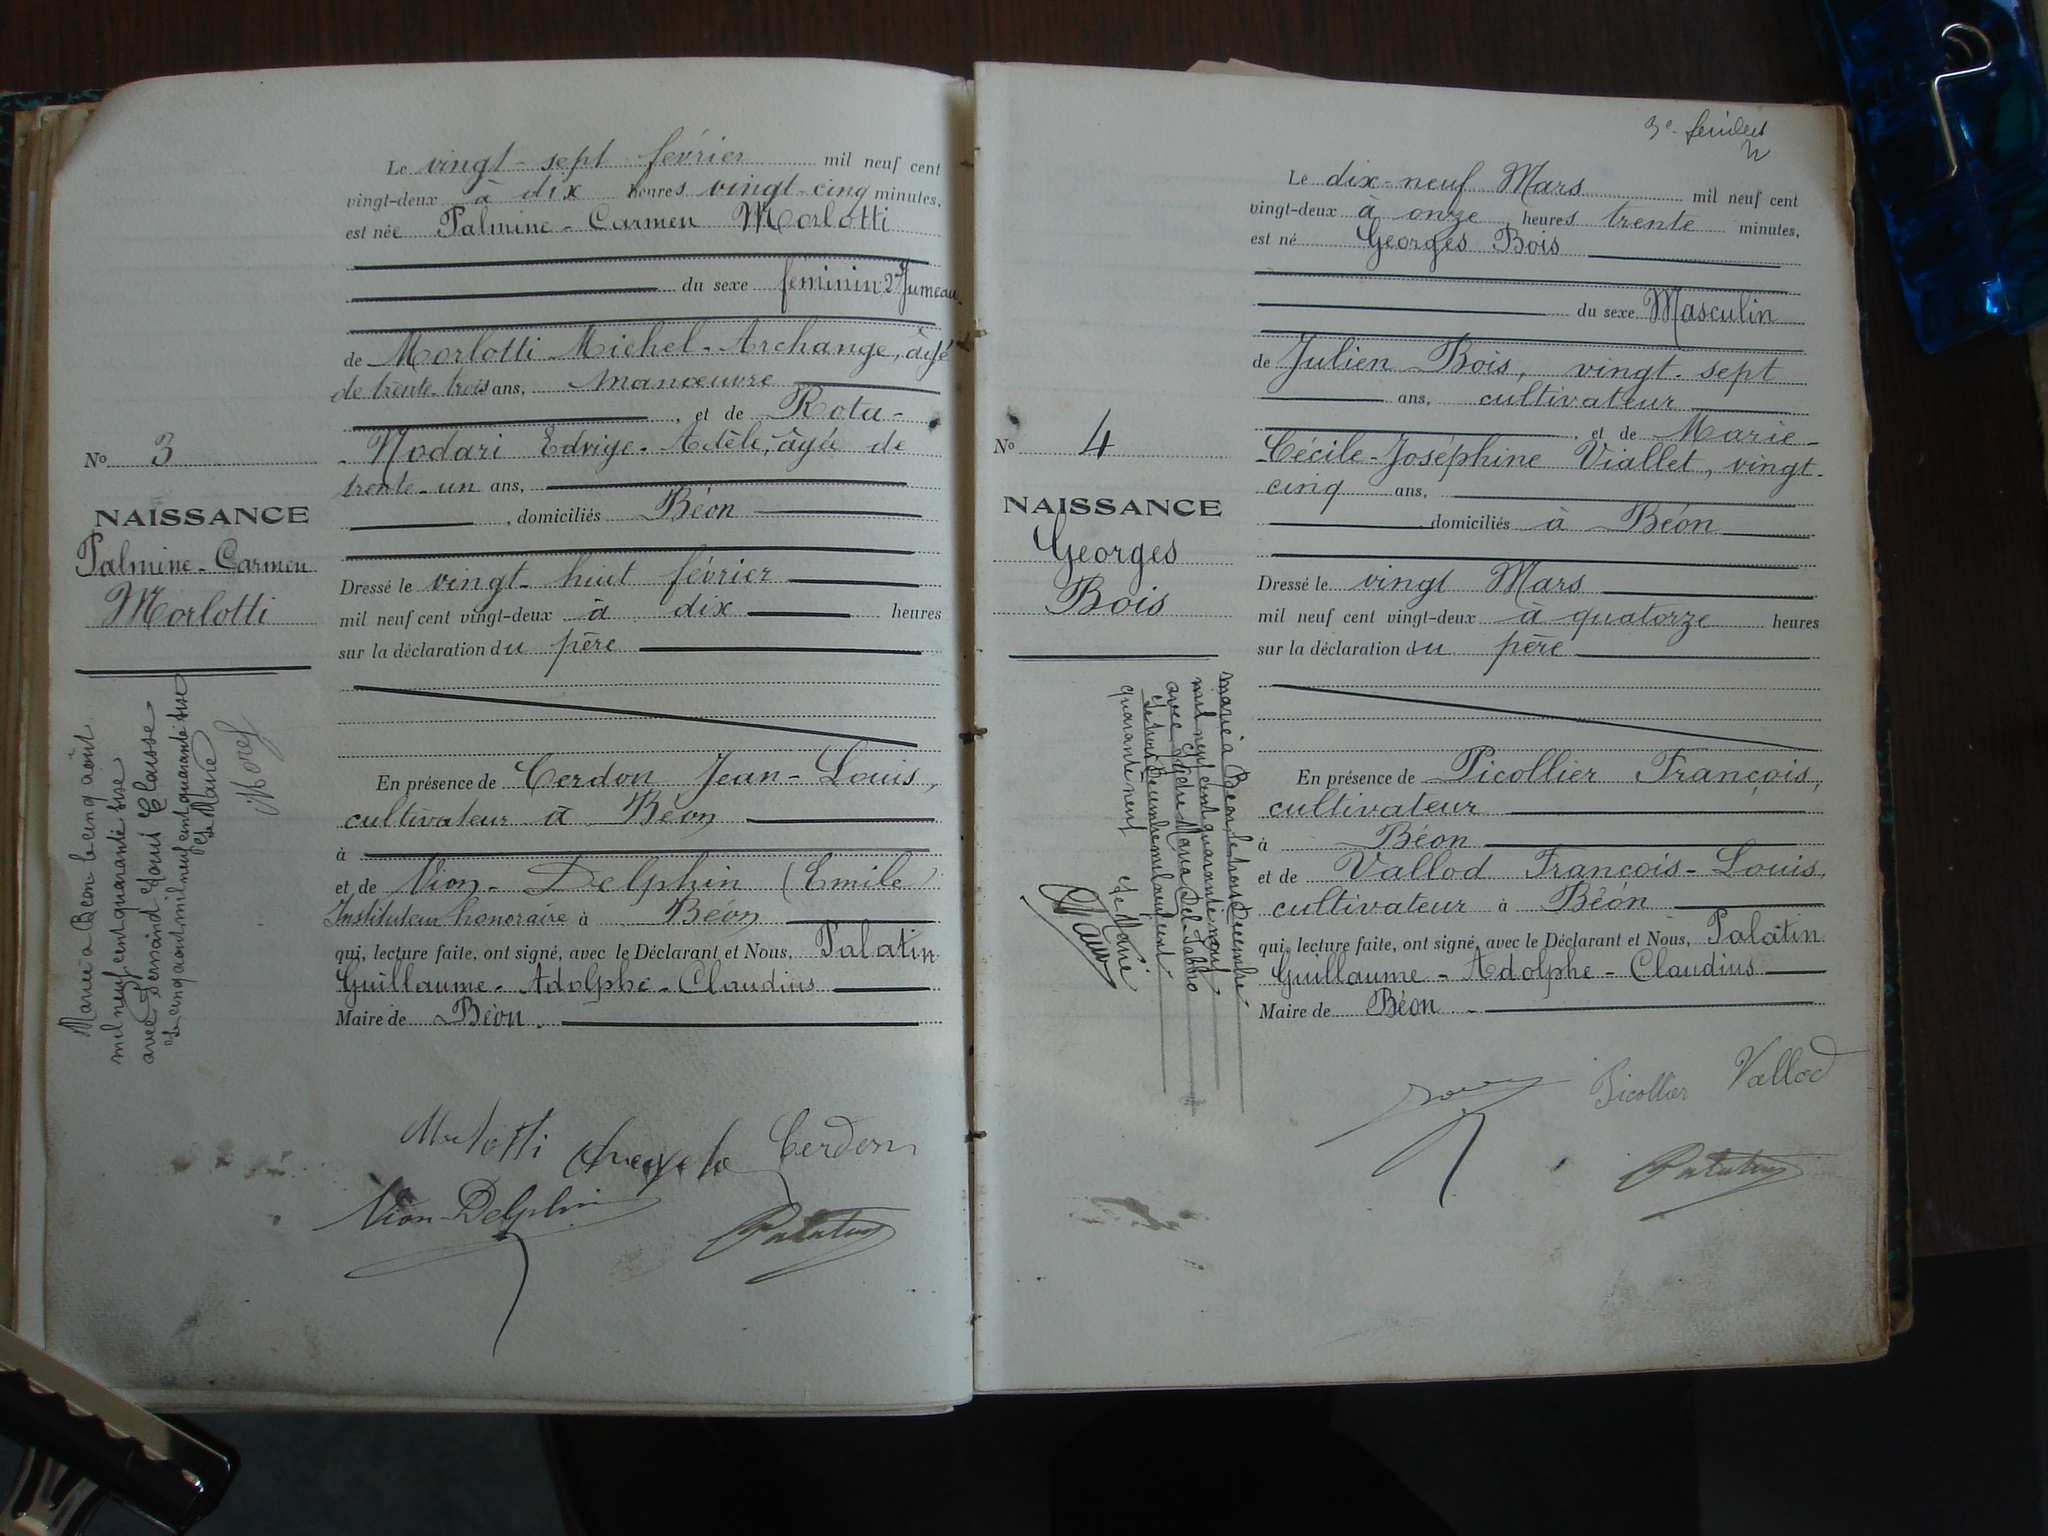 Le vingt-sept février mil neuf cent
vingt-deux à dix heures vingt-cinq minutes,
est née Palmine-Carmen Morlotti
du sexe féminin 2e Jumeau.
de Morlotti Michel-Archange, âgé
de trente-trois ans, manœuvre
, et de Rota-
Nodari Edvige-Adèle, âgée de
trente-un ans,
, domiciliés Béon
Dressé le vingt-huit février
mil neuf cent vingt-deux à dix heures
sur la déclaration du père
En présence de Cerdon Jean-Louis,
cultivateur à Béon
à
et de Vion-Delphin (Emile)
Instituteur honoraire à Béon
qui, lecture faite, ont signé, avec le Déclarant et Nous, Palatin
Guillaume-Adolphe-Claudius
Maire de Béon.
No 3
NAISSANCE
Palmine-Carmen
Morlotti
Mariée à Béon le cinq août
mil neuf cent quarante
avec Louis
Le cinq août mil neuf cent quarante
Le Maire
Morlotti Cerdon
Vion-Delphin
Palatin
Le dix-neuf Mars mil neuf cent
vingt-deux à onze heures trente minutes,
est né Georges Bois
du sexe Masculin
de Julien Bois, vingt-sept
ans, cultivateur
, et de Marie-
Cécile-Joséphine Viallet, vingt-
cinq ans,
domiciliés à Béon
Dressé le vingt Mars
mil neuf cent vingt-deux à quatorze heures
sur la déclaration du père
En présence de Picollier François,
cultivateur
à Béon
et de Vallod François-Louis,
cultivateur à Béon
qui, lecture faite, ont signé, avec le Déclarant et Nous, Palatin
Guillaume-Adolphe-Claudius
Maire de Béon.
No 4
NAISSANCE
Georges
Bois
marié à Béon, le trois Décembre
mil neuf cent quarante neuf
avec Maria Del-Fabbro
Le trois Décembre mil neuf cent
quarante neuf Le Maire
Picollier Vallod
Palatin